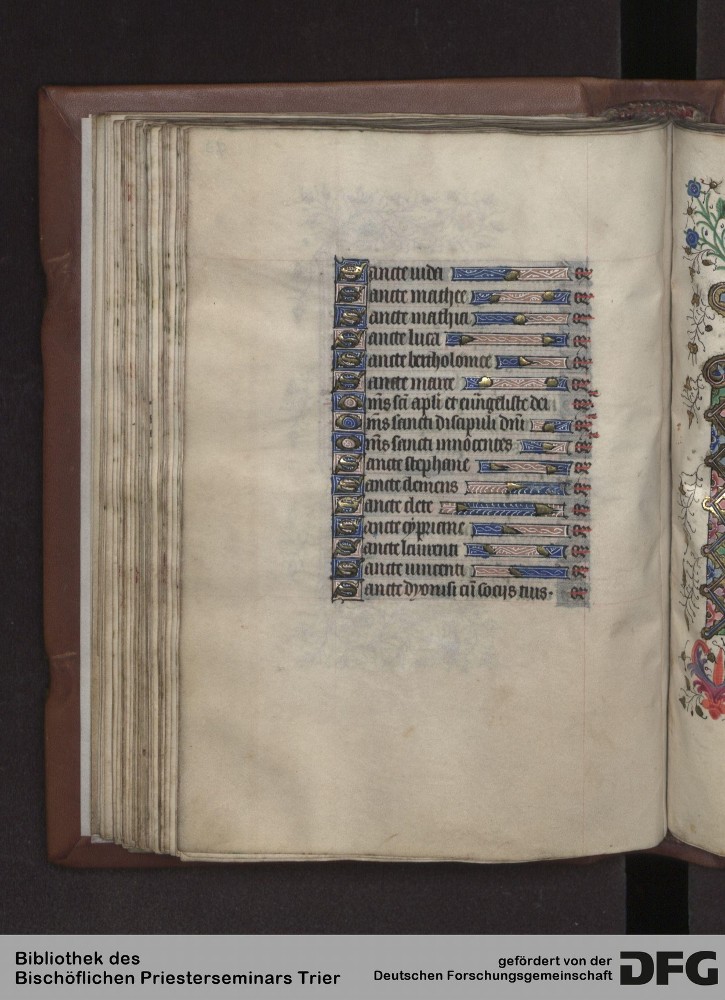 Sancte iuda or
Sancte mathee or
Sancte mathia or
Sancte luca or
Sancte bertholomee or
Sancte marce or
Om̄s sc̄i apl̄i et euūgeliste dei or
Om̄s sancti discipuli dn̄i or
Om̄s sancti innocentes or
Sancte stephane or
Sancte clemens or
Sancte clete or
Sancte cypriane or
Sancte laurenti or
Sancte vincenti or
Sancte dyonisi cū socijs tuis. or
Bibliothek des
Bischöflichen Priesterseminars Trier
gefördert von der
Deutschen Forschungsgemeinschaft DFG